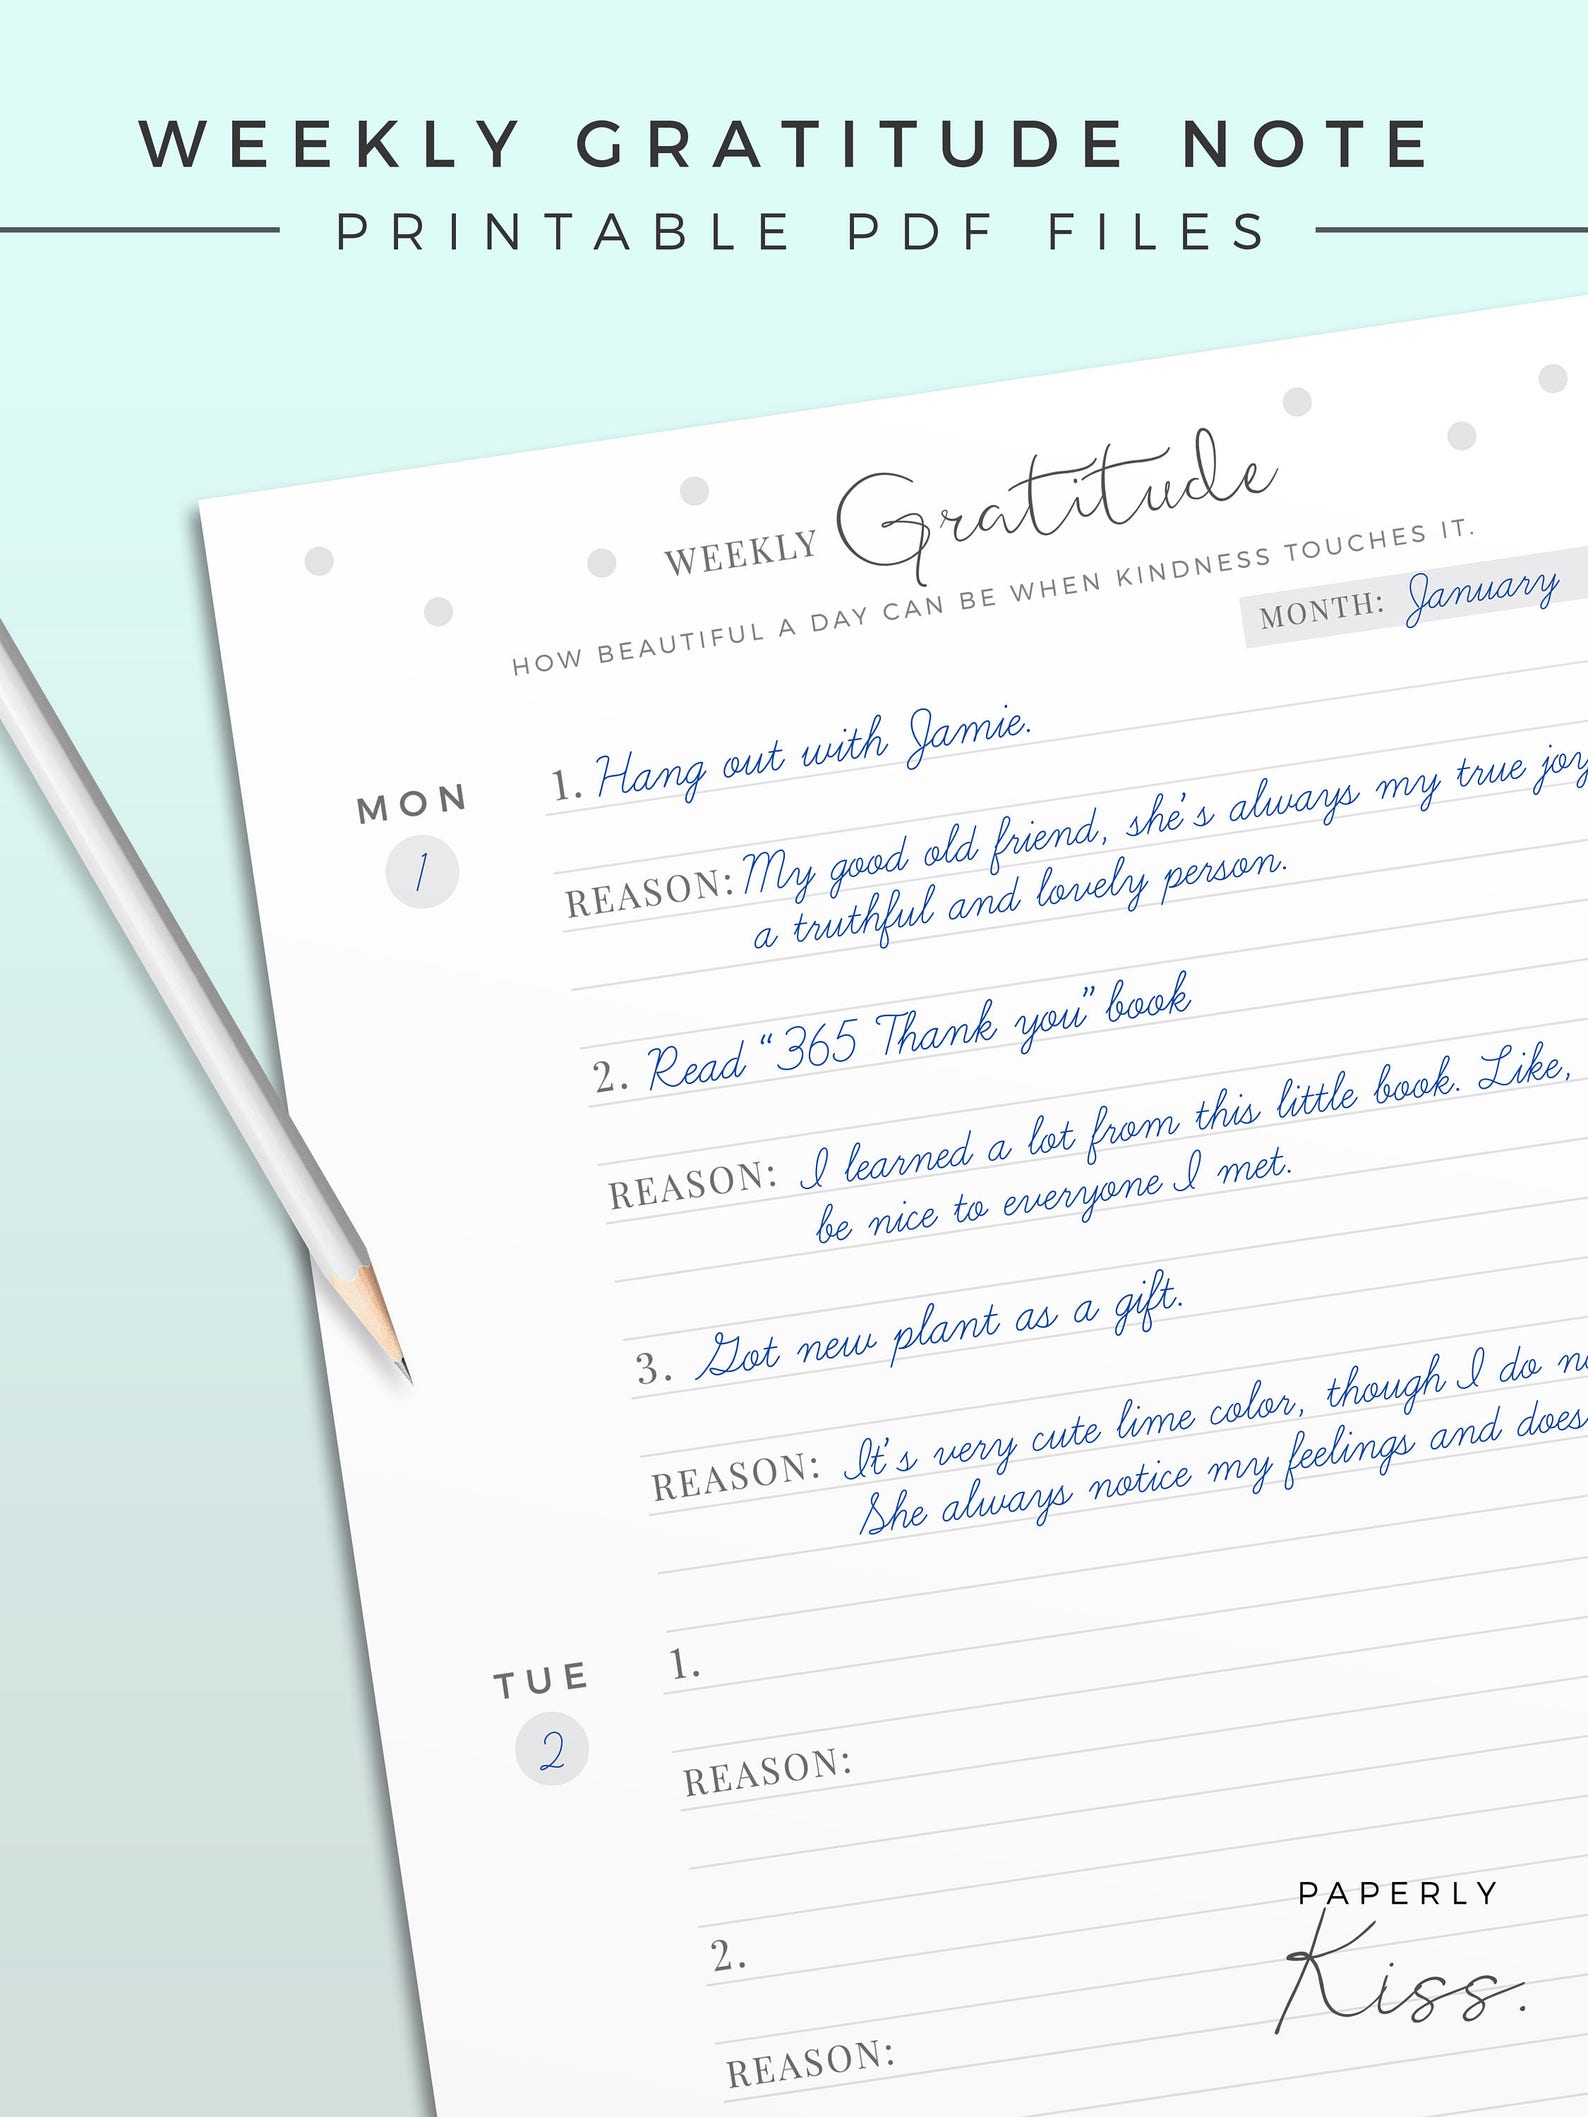 WEEKLY GRATITUDE NOTE
PRINTABLE PDF FILES
WEEKLY Gratitude
HOW BEAUTIFUL A DAY CAN BE WHEN KINDNESS TOUCHES IT.
MONTH: January
MON
1
1. Hang out with Jamie.
REASON: My good old friend, she's always my true joy
a truthful and lovely person.
2. Read “365 Thank you” book
REASON: I learned a lot from this little book. Like,
be nice to everyone I met.
3. Got new plant as a gift.
REASON: It's very cute lime color, though I do
She always notice my feelings and does
TUE
2
1.
REASON:
2.
REASON:
PAPERLY
Kiss.